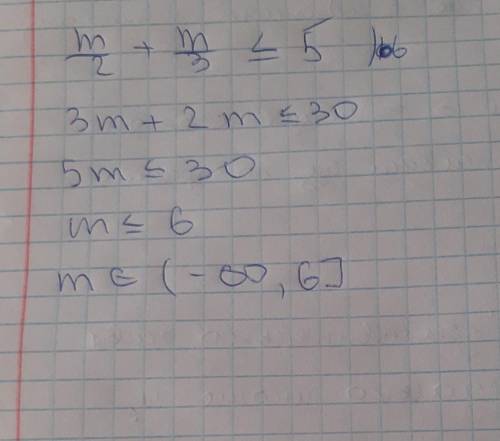 m/2 + m/3 ≤ 5 |·6
3m + 2m ≤ 30
5m ≤ 30
m ≤ 6
m ∈ (-∞, 6]